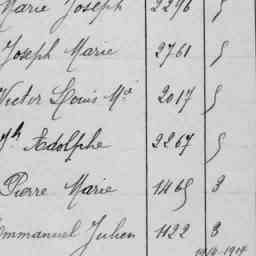 Marie Joseph 2296 5
Joseph Marie 2761 5
Victor Louis Mie 2017 5
Adolphe 2267 5
Pierre Marie 1465 3
Emmanuel Julien 1122 3